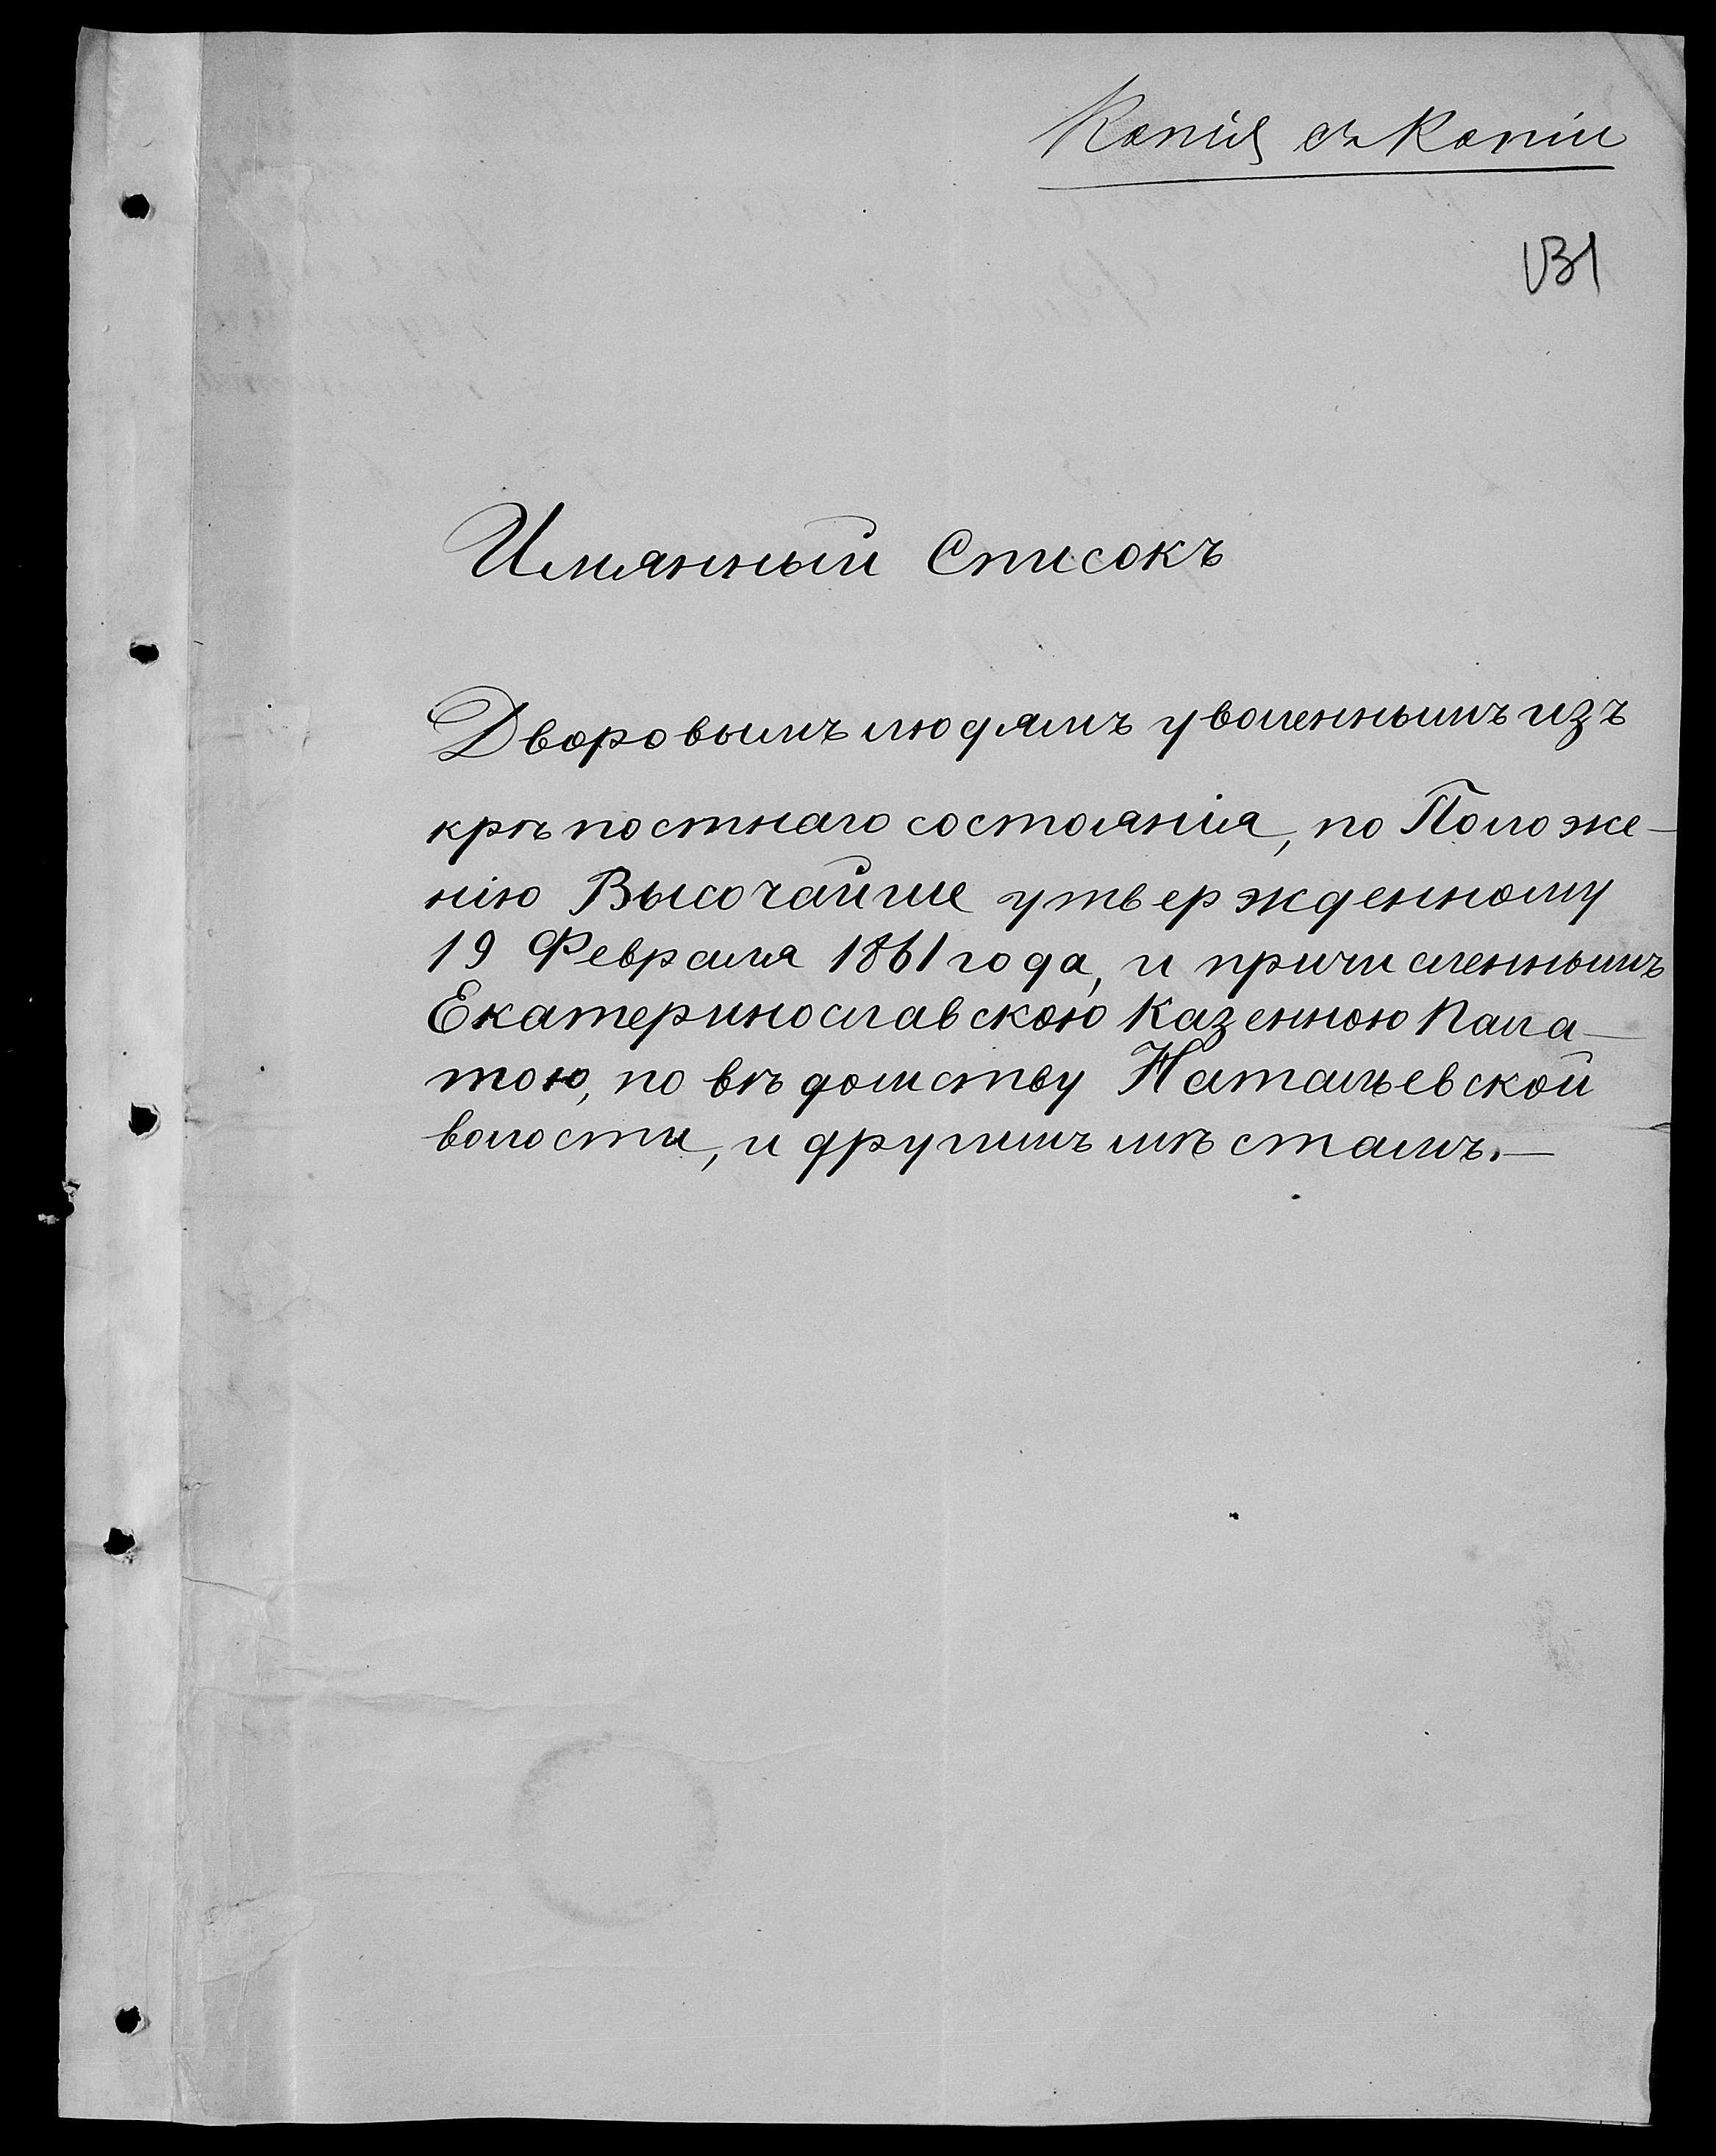 Копія съ Копіи
Имянный Списокъ
Дворовымъ людямъ уволеннымъ изъ
крѣпостнаго состоянія, по Положе-
нію Высочайше утвержденному
19 Февраля 1861 года, и причисленнымъ
Екатеринославскою Казенною Пала-
тою, по вѣдомству Натальевской
волости, и другимъ мѣстамъ.—